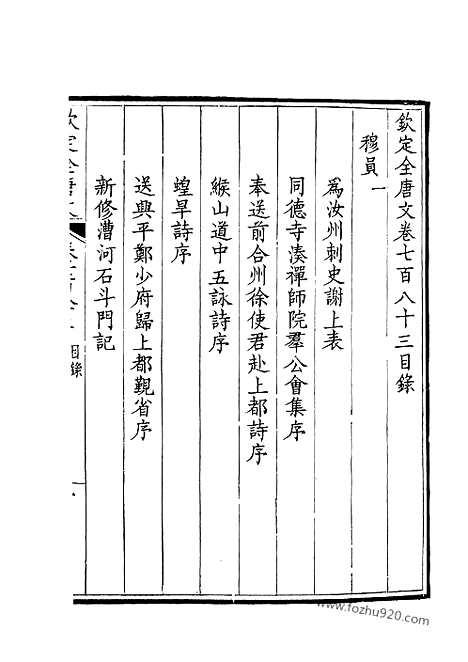 欽定全唐文卷七百八十三目錄
穆員一
爲汝州刺史謝上表
同德寺湊禪師院羣公會集序
奉送前合州徐使君赴上都詩序
緱山道中五詠詩序
蝗旱詩序
送興平鄭少府歸上都覲省序
新修漕河石斗門記
欽定全唐文
目錄
www.fozhu920.com